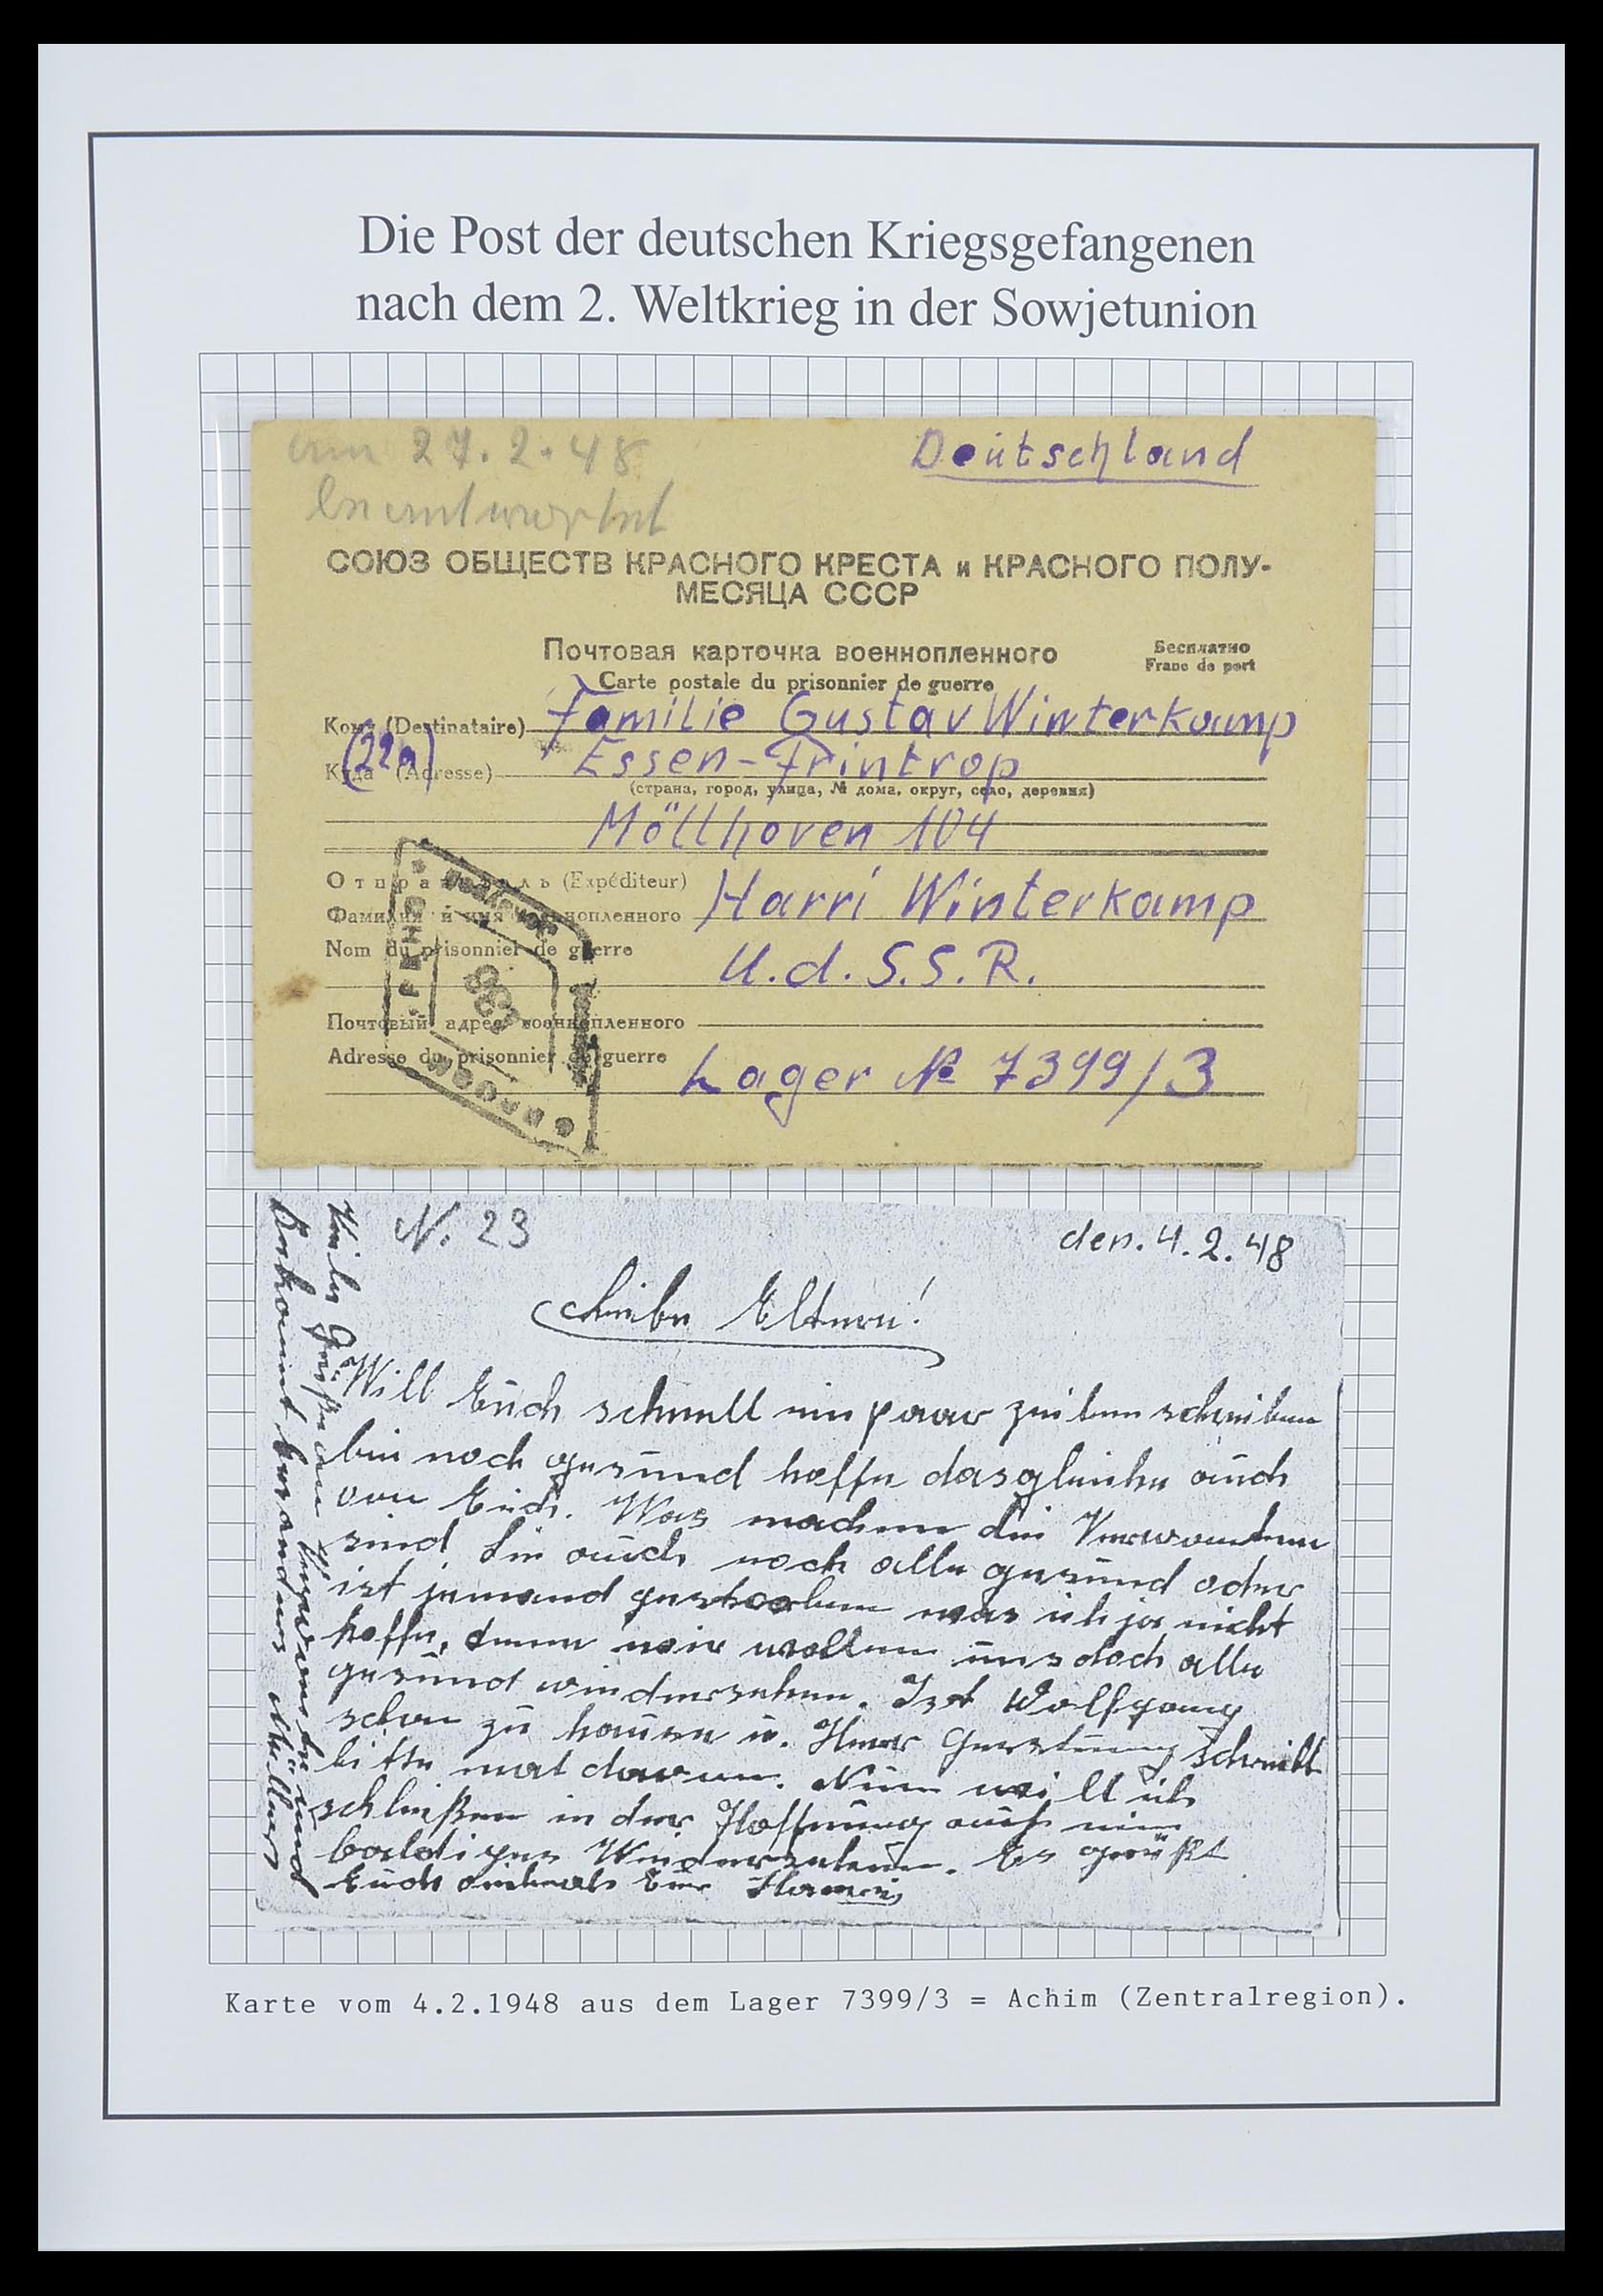 Die Post der deutschen Kriegsgefangenen
nach dem 2. Weltkrieg in der Sowjetunion
am 27.2.48
beantwortet
Deutschland
СОЮЗ ОБЩЕСТВ КРАСНОГО КРЕСТА и КРАСНОГО ПОЛУ-
МЕСЯЦА СССР
Почтовая карточка военнопленного
Бесплатно
Franc de port
Carte postale du prisonnier de guerre
Кому (Destinataire) Familie Gustav Winterkamp
(22a)
Куда (Adresse) Essen-Frintrop
(страна, город, улица, № дома, округ, село, деревня)
Möllhoven 104
Отправитель (Expéditeur)
Фамилия и имя военнопленного Harri Winterkamp
Nom du prisonnier de guerre
U.d.S.S.R.
Почтовый адрес военнопленного
Adresse du prisonnier de guerre
Lager № 7399/3
N. 23
den. 4.2.48
Liebe Eltern!
Will Euch schnell ein paar zeilen schreiben
bin noch gesund hoffe dasgleiche auch
von Euch. Was machen die Verwandten
sind Sie auch noch alle gesund oder
ist jemand gestorben was ich ja nicht
hoffe, denn wir wollen uns doch alle
gesund wiedersehen. Ist Wolfgang
schon zu hause u. Herr schreibt
bitte mal davon. Nun will ich
schließen in der Hoffnung auf ein
baldiges Wiedersehen. Es grüßt
Euch vielmals Euer Harri
Viele Grüße an Verwandte und
Bekannte besonders Müller
Karte vom 4.2.1948 aus dem Lager 7399/3 = Achim (Zentralregion).